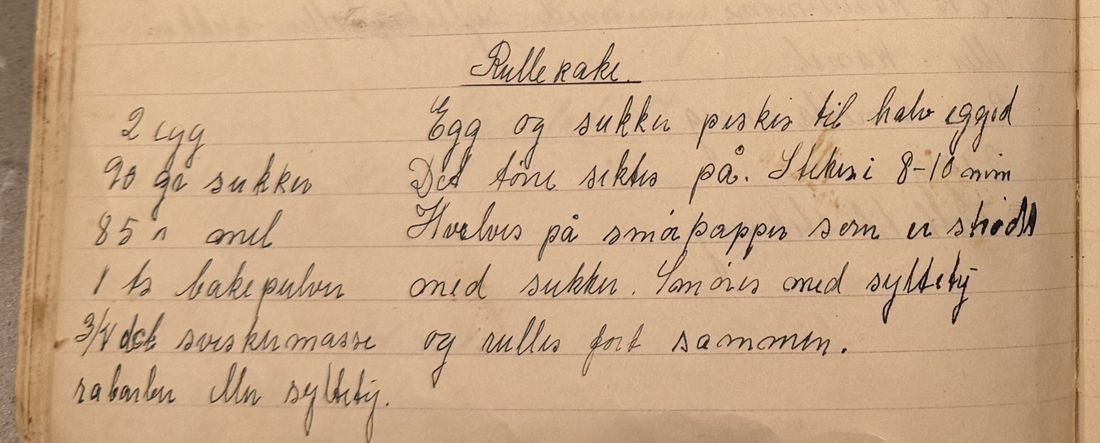 Rullekake.
2 egg
90 gr sukker
85 " mel
1 ts bakepulver
3/4 dcl sveskemasse
rabarber eller syltetøy.
Egg og sukker piskes til halv egged
Det tørre siktes på. Stekes i 8-10 min
Hvelves på smørpapper som er strødt
med sukker. Smøres med syltetøy
og rulles fort sammen.